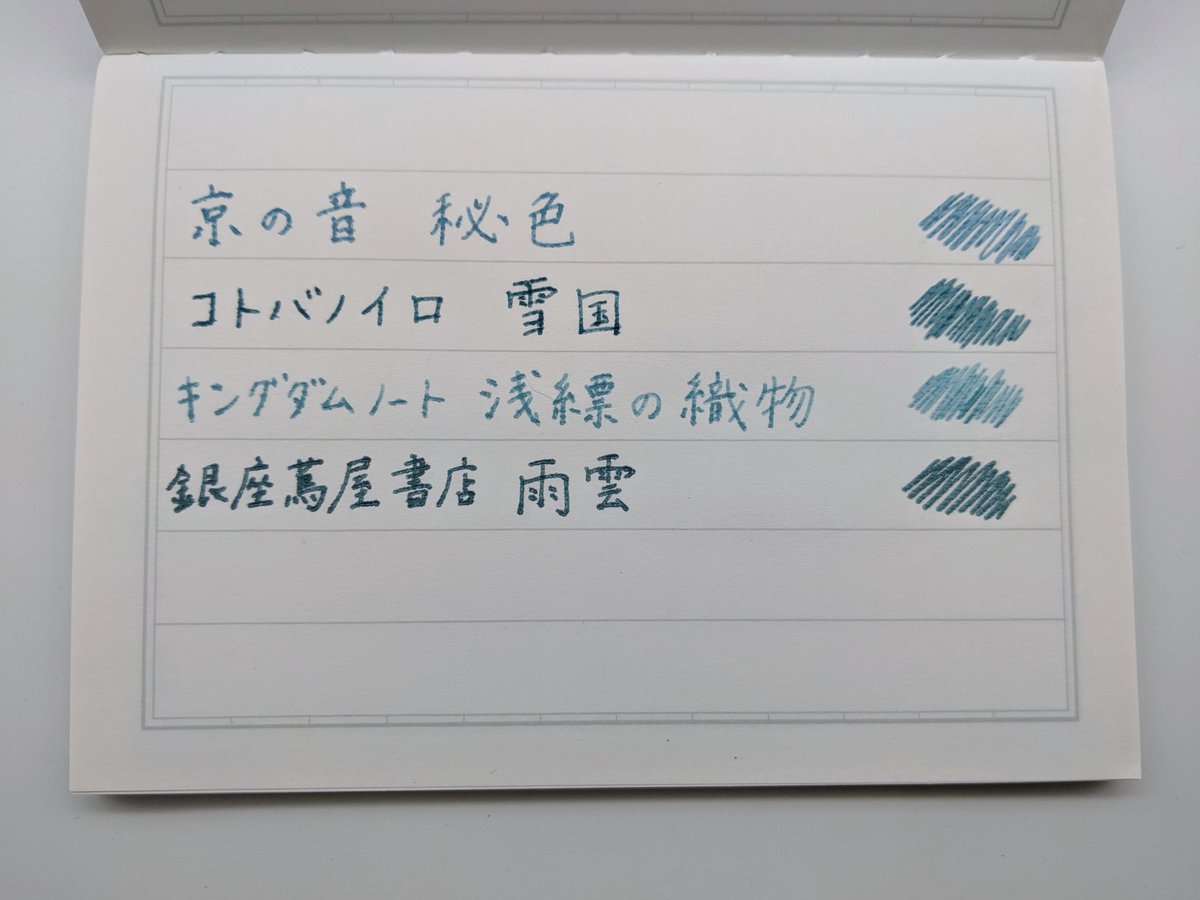 京の音 秘色
コトバノイロ 雪国
キングダムノート 浅縹の織物
銀座蔦屋書店 雨雲